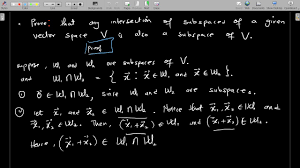 • Prove: that any intersection of subspaces of a given
vector space V is also a subspace of V.
Proof
suppose, W₁ and W₂ are subspaces of V.
and W₁ ∩ W₂ = { x⃗ : x⃗ ∈ W₁ and x⃗ ∈ W₂ }.
① 0⃗ ∈ W₁ ∩ W₂, since W₁ and W₂ are subspaces.
② let x⃗₁, x⃗₂ ∈ W₁ ∩ W₂. Notice that x⃗₁, x⃗₂ ∈ W₁ and
x⃗₁, x⃗₂ ∈ W₂. Then, (x⃗₁+x⃗₂) ∈ W₁, and (x⃗₁+x⃗₂) ∈ W₂
Hence, (x⃗₁+x⃗₂) ∈ W₁ ∩ W₂